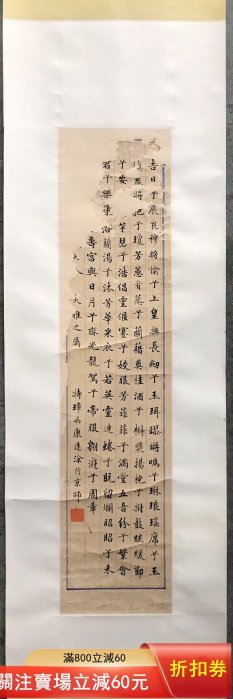 吉日兮辰良穆將愉兮上皇撫長劍兮玉珥璆鏘鳴兮琳琅瑤席兮玉
瑱盍將把兮瓊芳蕙肴蒸兮蘭藉奠桂酒兮椒漿揚枹兮拊鼓疏緩節
兮安 竽瑟兮浩倡靈偃蹇兮姣服芳菲菲兮滿堂五音紛兮繁會
君兮樂康浴蘭湯兮沐芳華采衣兮若英靈連蜷兮既留爛昭昭兮未
壽宮與日月兮齊光龍駕兮帝服聊翱遊兮周章
大雅之屬
弟康達涂於京師
滿800立減60
關注賣場立減60元
折扣券